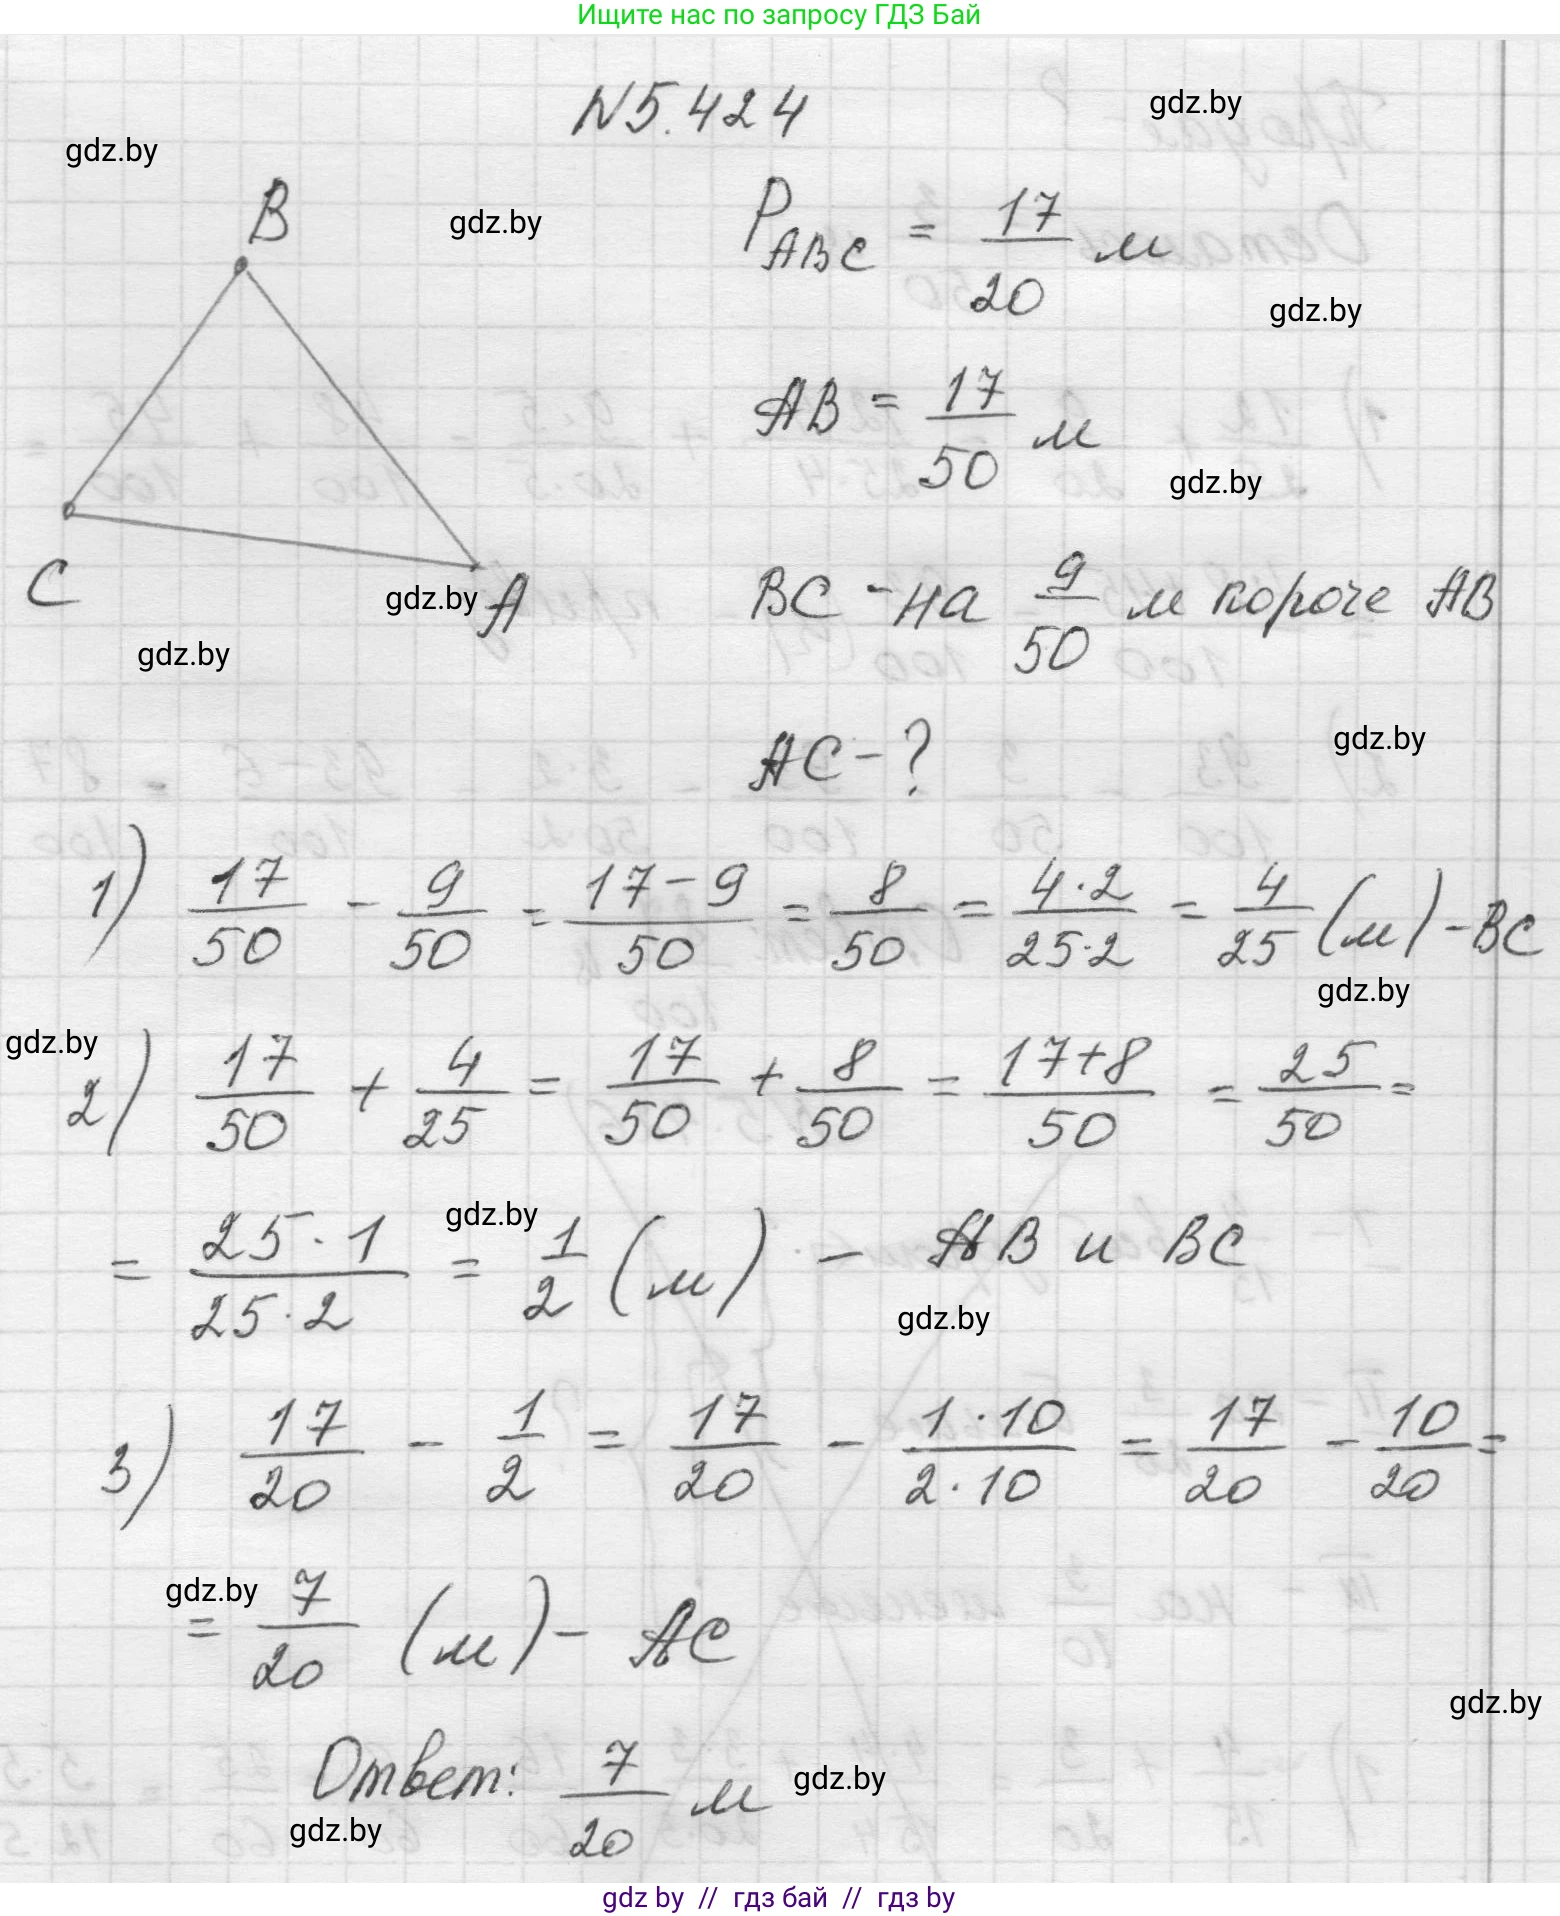 Ищите нас по запросу ГДЗ Бай
N5.424
gdz.by
gdz.by
B
gdz.by
P_ABC = 17/20 м
gdz.by
AB = 17/50 м
gdz.by
C
gdz.by
A
BC - на 9/50 м короче AB
gdz.by
AC - ?
gdz.by
1) 17/50 - 9/50 = 17-9/50 = 8/50 = 4·2/25·2 = 4/25 (м) - BC
gdz.by
gdz.by
2) 17/50 + 4/25 = 17/50 + 8/50 = 17+8/50 = 25/50 =
gdz.by
= 25·1/25·2 = 1/2 (м) - AB и BC
gdz.by
3) 17/20 - 1/2 = 17/20 - 1·10/2·10 = 17/20 - 10/20 =
gdz.by
= 7/20 (м) - AC
gdz.by
Ответ: 7/20 м
gdz.by
gdz.by
gdz by // гдз бай // гдз by